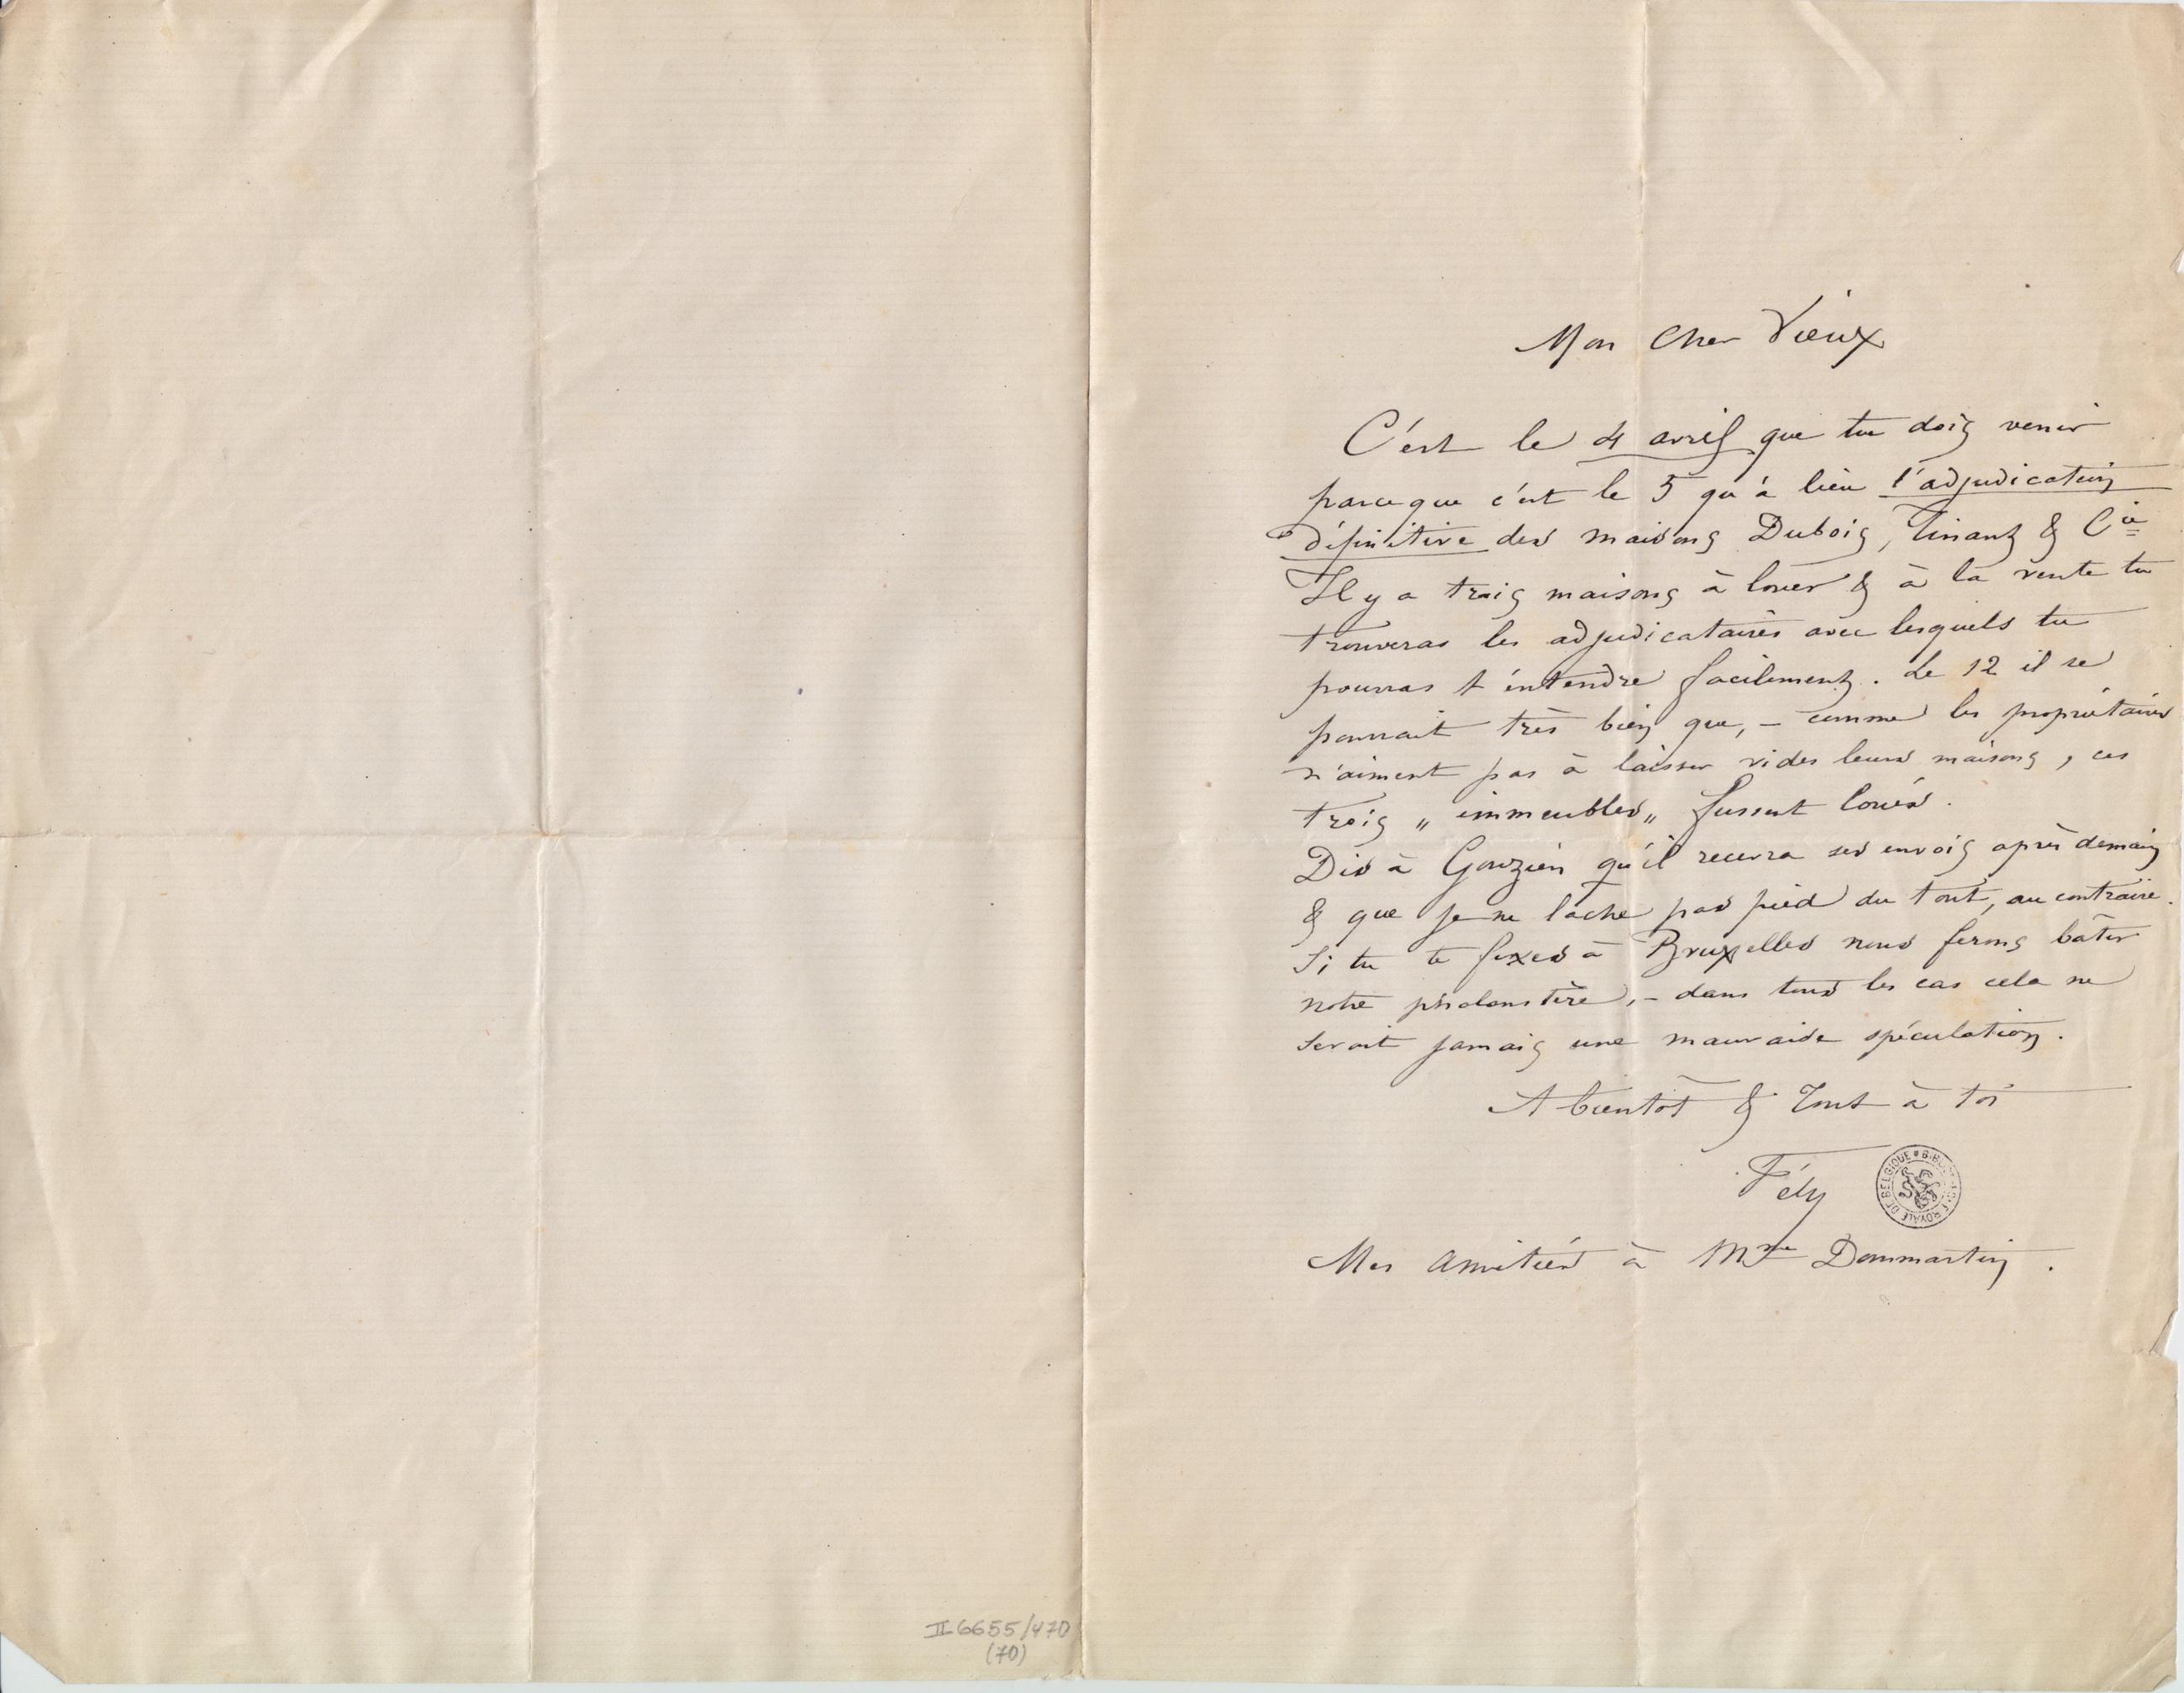 Mon Cher Vieux
C'est le 4 avril que tu dois venir
parceque c'est le 5 qu'à lieu l'adjudication
définitive des maisons Dubois, Tinant & Cie
Il y a trois maisons à louer & à la vente tu
trouveras les adjudicataires avec lesquels tu
pourras t'entendre facilement. Le 12 il se
pourrait très bien que, – comme les propriétaires
n'aiment pas à laisser vides leurs maisons, ces
trois „ immeubles „ fussent loués.
Dis à Gouzien qu'il recevra ses envois après demain
& que je ne lache pas pied du tout, au contraire.
Si tu te fixes à Bruxelles nous ferons bâtir
notre phalanstère, – dans tous les cas cela ne
serait jamais une mauvaise spéculation.
A bientôt & Tout à toi
Fély
BIBLIOTHÈQUE ROYALE DE BELGIQUE
Mes amitiés à Mme Dommartin.
II 6655/470
(70)